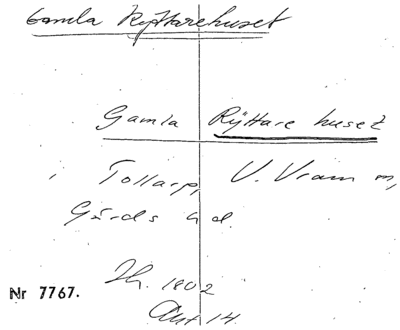 Gamla Ryttarehuset
Gamla Ryttare huset
Tollarp, V. Vram m,
Gärds hd.
Th. 1802
Nr 7767.
14.